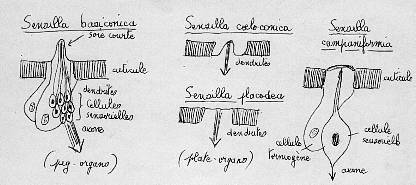 Sensilla basiconica
soie courte
cuticule
dendrites
cellules
sensorielles
axone
(peg-organs)
Sensilla coeloconica
dendrites
Sensilla placodea
dendrites
(plate-organs)
Sensilla
campaniformia
cuticule
cellule
tormogène
cellule
sensorielle
axone